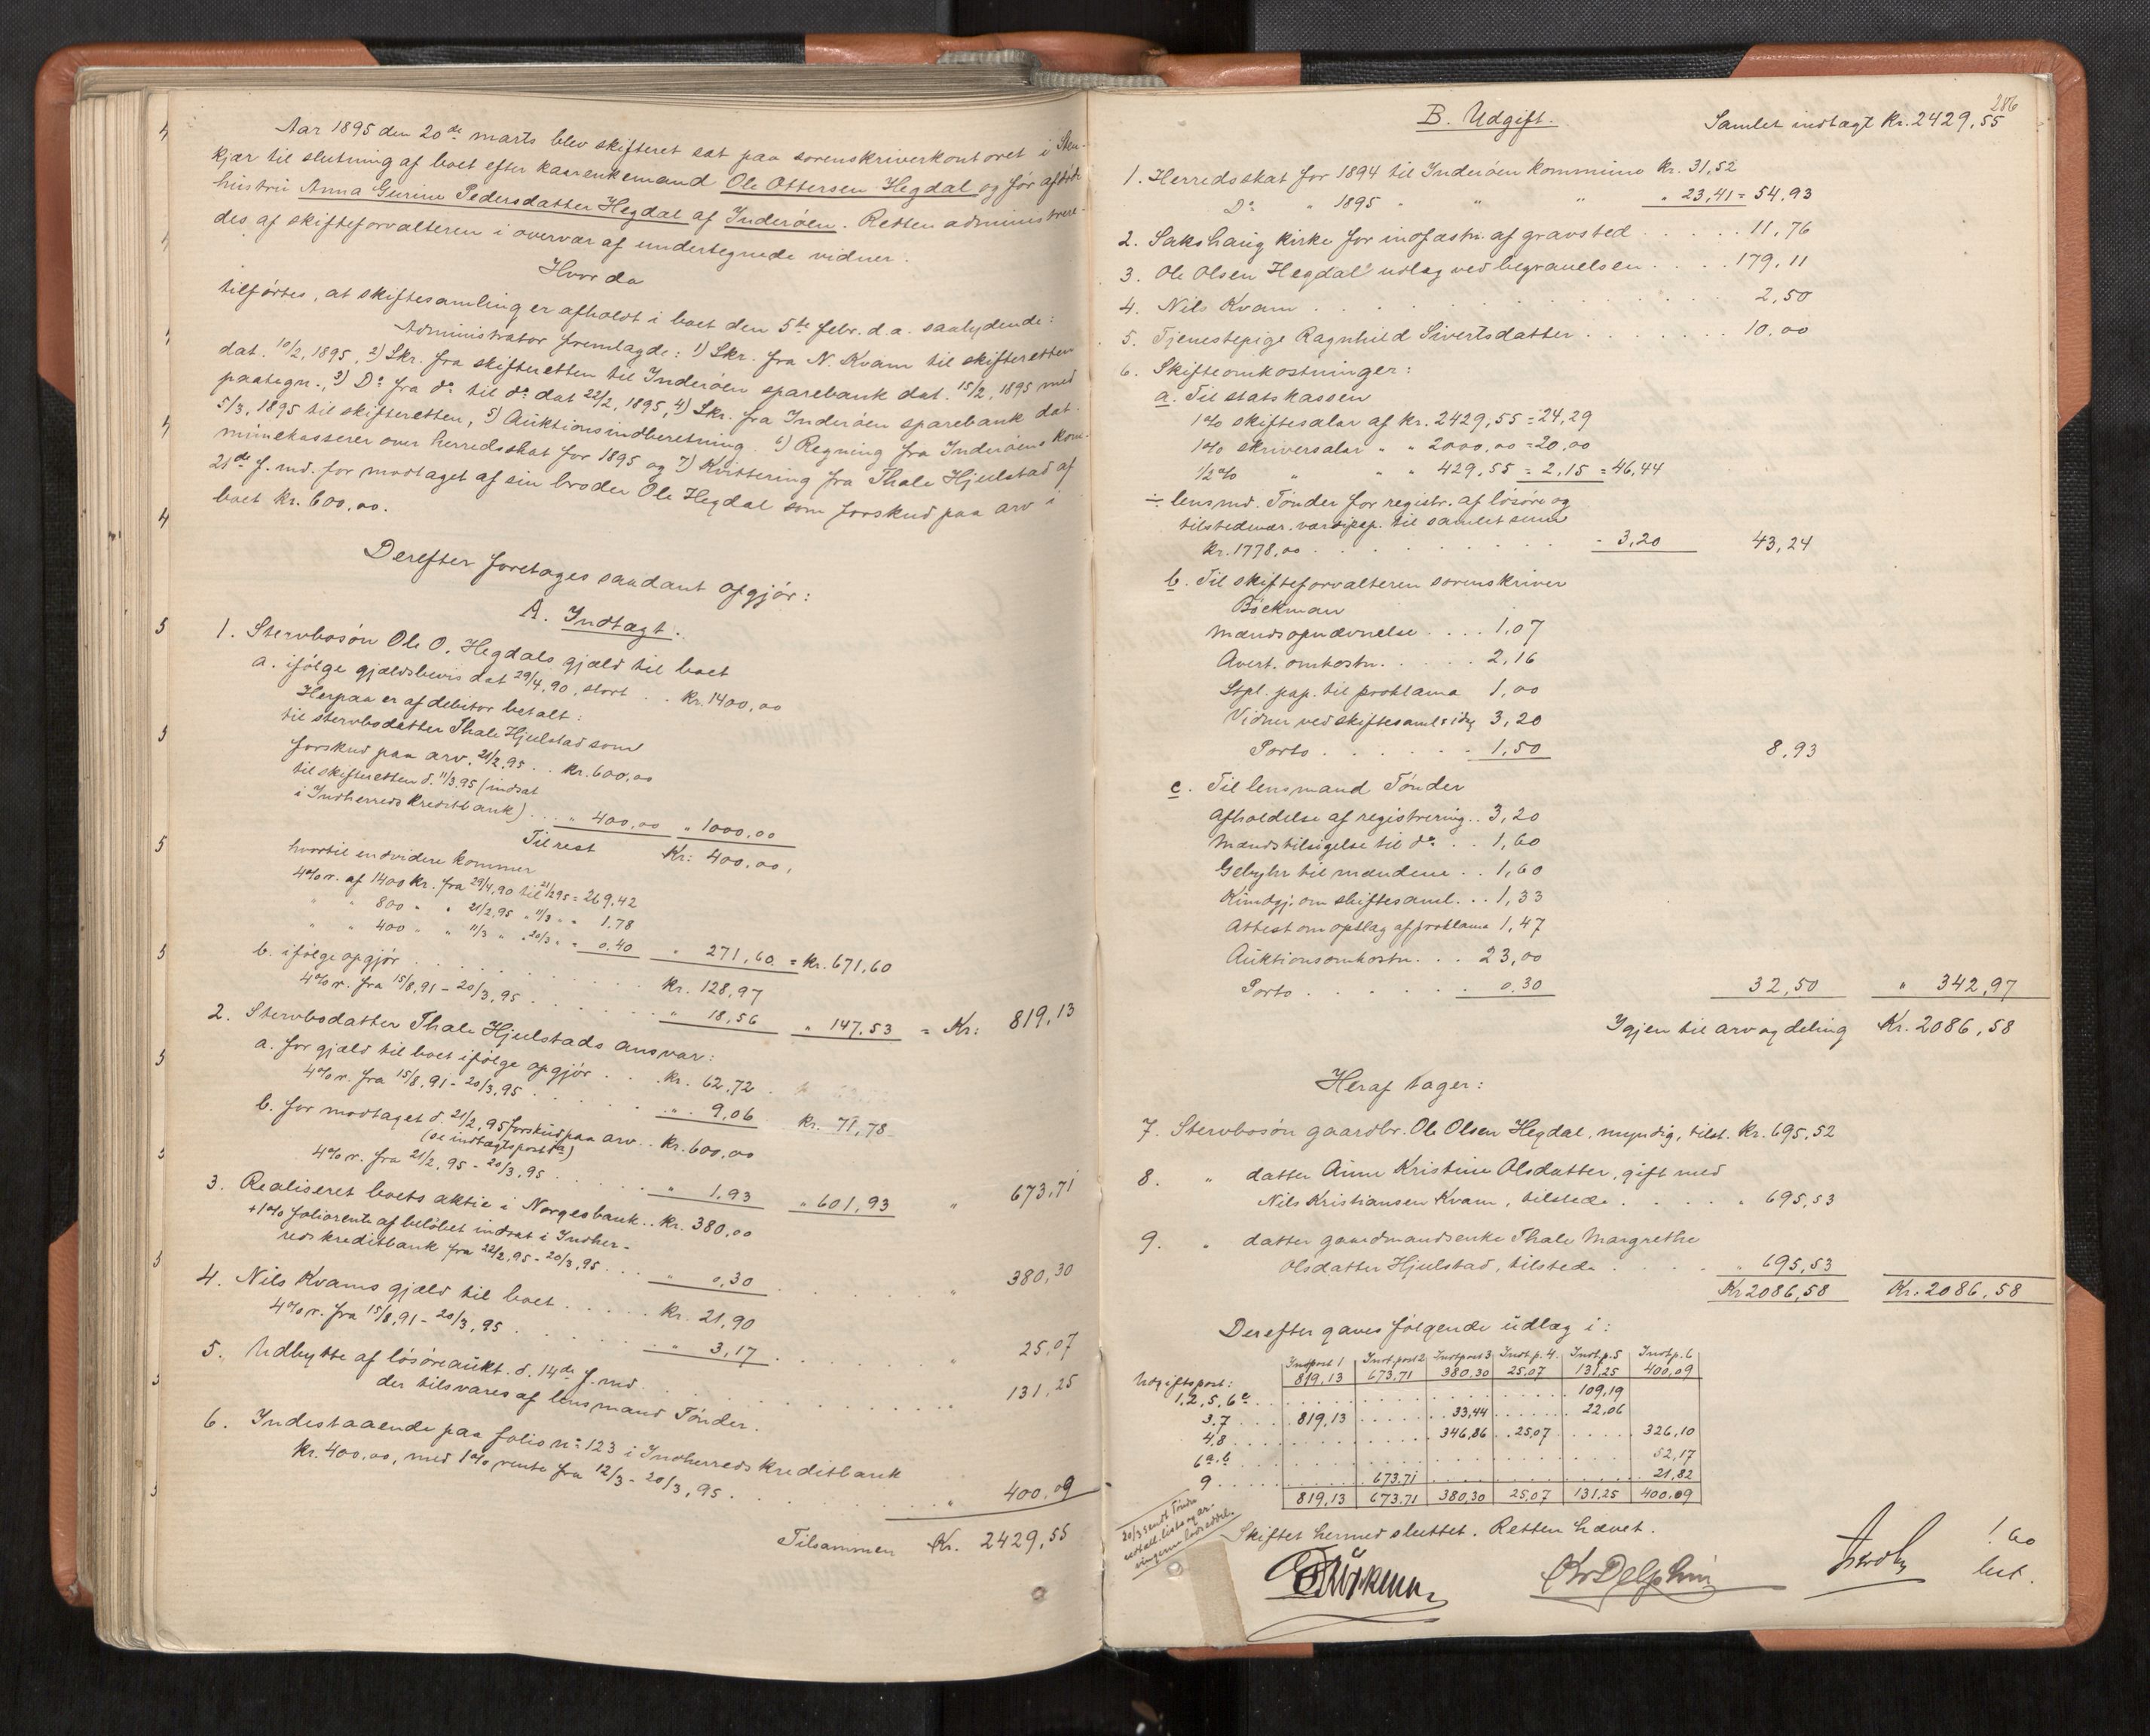 Aar 1895 den 20de marts blev skifteret sat paa sorenskriverkontoret i Sten-
kjær til slutning af boet efter kaarenkemand Ole Ottersen Hegdal og før afdøde
hustru Anna Gurine Pedersdatter Hegdal af Inderøen. Retten administrere-
des af skifteforvalteren i overvær af undertegnede vidner.
Hvorda
tilførtes, at skiftesamling er afholdt i boet den 5te febr. d.a. saalydende:
Administrator fremlagde: 1) Skr. fra N. Kvam til skifteretten
dat. 10/2, 1895, 2) Skr. fra skifteretten til Inderøen sparebank dat. 15/2, 1895 med
paategn., 3) Do fra do til do dat 22/2, 1895, 4) Skr. fra Inderøen sparebank dat.
5/3, 1895 til skifteretten, 5) Auktionsindberetning. 6) Regning fra Inderøens kom-
munekasserer over herredsskat for 1895 og 7) Kvittering fra Thale Hjulstad af
21de f. md. for modtaget af sin broder Ole Hegdal som forskud paa arv i
boet kr. 600,00.
Derefter foretoges saadant opgjør:
A. Indtægt.
1. Stervbosøn Ole O. Hegdals gjæld til boet
a. ifølge gjældsbevis dat 29/4, 90, stort . . kr. 1400,00
Herpaa er af debitor betalt:
til stervbodatter Thale Hjulstad som
forskud paa arv. 21/2, 95 . . kr. 600,00
til skifteretten d. 11/3, 95 (indsat
i Indherreds kreditbank) . . " 400,00 " 1000,00
Til rest Kr. 400,00,
hvortil endvidere kommer
4% r. af 1400 kr. fra 29/4, 90 til 21/2 95 = 269,42
" " 800 " " 21/2, 95 " 11/3 " " 1,78
" " 400 " " 11/3 " " 20/3 " " 0,40 " 271,60 = Kr. 671,60
b. ifølge opgjør . . . . . . Kr. 128,97
4% r. fra 15/8, 91 - 20/3, 95 . . . . . " 18,56 " 147,53 = Kr: 819,13
2. Stervbodatter Thale Hjulstads ansvar:
a. for gjæld til boet ifølge opgjør . . . Kr. 62,72
4% r. fra 15/8, 91 - 20/3, 95 . . . . . " 9,06 Kr. 71,78
b. for modtaget d. 21/2, 95 forskud paa arv . . Kr. 600,00
(se indtægtspost 1a)
4% r. fra 21/2, 95 - 20/3, 95 . . . . " 1,93 " 601,93 " 673,71
3. Realiseret boets aktie i Norges bank . . Kr. 380,00
+ 1% foliorente af beløbet indsat i Indher-
reds kreditbank fra 22/2, 95 - 20/3, 95 . . . " 0,30 . . . . . " 380,30
4. Nils Kvams gjæld til boet . . . . . Kr. 21,90
4% r. fra 15/8, 91 - 20/3, 95 . . . . . " 3,17 . . . . . " 25,07
5. Udbytte af løsøreaukt. d. 14de f. md. . . . . . . 131,25
der tilsvares af lensmand Tønder.
6. Indestaaende paa folio no 123 i Indherreds kreditbank
kr. 400,00, med 1% rente fra 12/3 - 20/3, 95 . . . . . " 400,09
Tilsammen Kr. 2429,55
286
B. Udgift. Samlet indtægt Kr. 2429,55
1. Herredsskat for 1894 til Inderøen kommune Kr. 31,52
Do " 1895 " " " " 23,41 = 54,93
2. Sakshaug kirke for indfæstn. af gravsted . . . . 11,76
3. Ole Olsen Hegdal udlæg ved begravelsen . . . . 179,11
4. Nils Kvam . . . . . . . . . . . 2,50
5. Tjenestepige Ragnhild Sivertsdatter . . . . . . 10,00
6. Skifteomkostninger:
a. Til statskassen
1% skiftesalær af kr. 2429,55 = 24,29
1% skriversalær " " 2000,00 = 20,00
1/2% " " " 429,55 = 2,15 = 46,44
÷ lensmd. Tønder for registr. af løsøre og
tilstedevær. værdipap. til samlet sum
kr. 1778,00 . . . . . . . . . . - 3,20 43,24
b. Til skifteforvalteren sorenskriver
Böckman
Mændsopnævnelse . . . . 1,07
Avert. omkostn. . . . . . 2,16
Stpl. pap. til proklama 1,00
Vidner ved skiftesaml. idag 3,20
Porto . . . . . . 1,50 8,93
c. Til lensmand Tønder
Afholdelse af registrering . . 3,20
Mændstilsigelse til do . . 1,60
Gebyhr til mændene . . 1,60
Kundgj. om skiftesaml. . . 1,33
Attest om opslag af proklama 1,47
Auktionsomkostn. . . . 23,00
Porto . . . . . . . 0,30 32,50 " 342,97
Igjen til arv og deling Kr. 2086,58
Heraf tager:
7. Stervbosøn gaardbr. Ole Olsen Hegdal, myndig, tilst. Kr. 695,52
8. " datter Anne Kristine Olsdatter, gift med
Nils Kristiansen Kvam, tilstede . . . . " 695,53
9. " datter gaardmandsenke Thale Margrethe
Olsdatter Hjulstad, tilstede . . . . " 695,53
Kr 2086,58 Kr. 2086,58
Derefter gaves følgende udlæg i:
Indtpost 1 Indt. post 2 Indtpost 3 Indt. p. 4. Indt. p. 5 Indt p. 6
Udgiftspost: 819,13 673,71 380,30 25,07 131,25 400,09
1, 2, 5, 6c . . . . . 109,19
3. 7 . . . . 819,13 . . . . 33,44 . . . . 22,06
4, 8 . . . . . 346,86 . . 25,07 . . . . 326,10
6a.b . . . . . 52,17
9 . . . . . 673.71 . . . . . 21,82
819,13 673,71 380,30 25,07 131,25 400,09
20/3 sendt Tønder
Skiftet hermed sluttet. Retten hævet.
Böckman
Chr Delphin
! 60
bet.
4
4
4
4
5
5
5
5
5
5
5
5
5